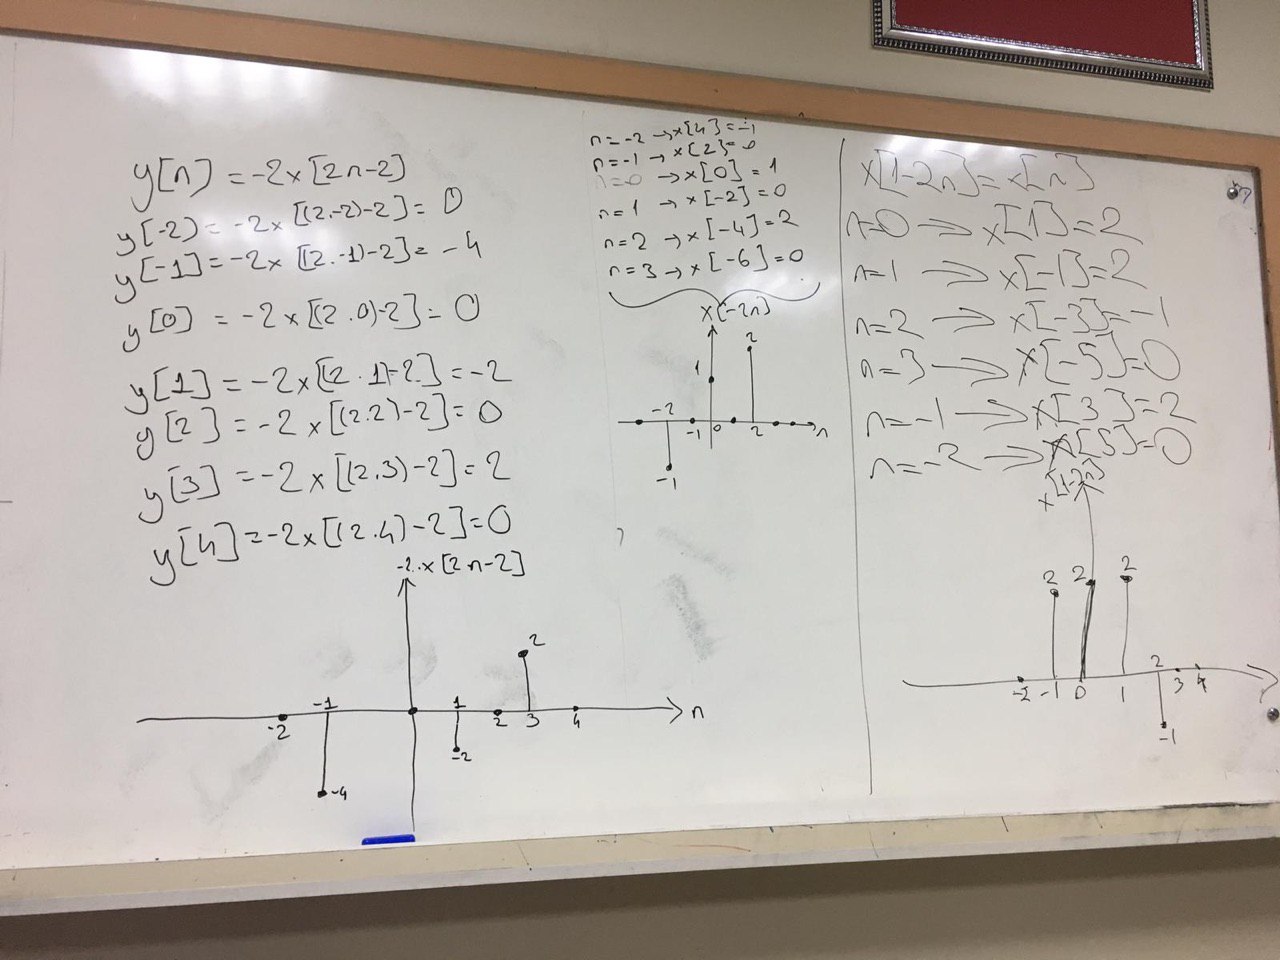 y[n] = -2x[2n-2]
y[-2) = -2x [(2.-2)-2] = 0
y[-1] = -2x [(2.-1)-2] = -4
y[0] = -2x[(2.0)-2] = 0
y[1] = -2x[(2.1)-2] = -2
y[2] = -2x[(2.2)-2] = 0
y[3] = -2x[(2.3)-2] = 2
y[4] = -2x[(2.4)-2] = 0
-2.x[2n-2]
2
-2 -1 1 2 3 4 n
-2
-4
n=-2 → x[4] = -1
n=-1 → x[2] = 0
n=0 → x[0] = 1
n=1 → x[-2] = 0
n=2 → x[-4] = 2
n=3 → x[-6] = 0
x[-2n]
2
1
-2 -1 0 2 n
-1
x[1-2n] = x[n]
n=0 → x[1] = 2
n=1 → x[-1] = 2
n=2 → x[-3] = -1
n=3 → x[-5] = 0
n=-1 → x[3] = 2
n=-2 → x[5] = 0
x[1-2n]
2 2 2
-2 -1 0 1 2 3 4
-1